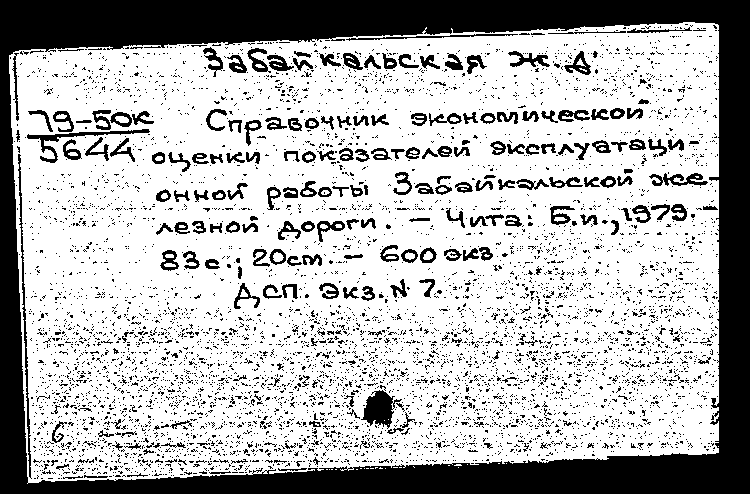 Забайкальская ж.д.
79-50к Справочник экономической
5644 оценки показателей эксплуатаци-
онной работы Забайкальской же-
лезной дороги. — Чита: Б.и., 1979. —
83с.; 20см. — 600 экз.
ДСП. Экз. N 7.
6